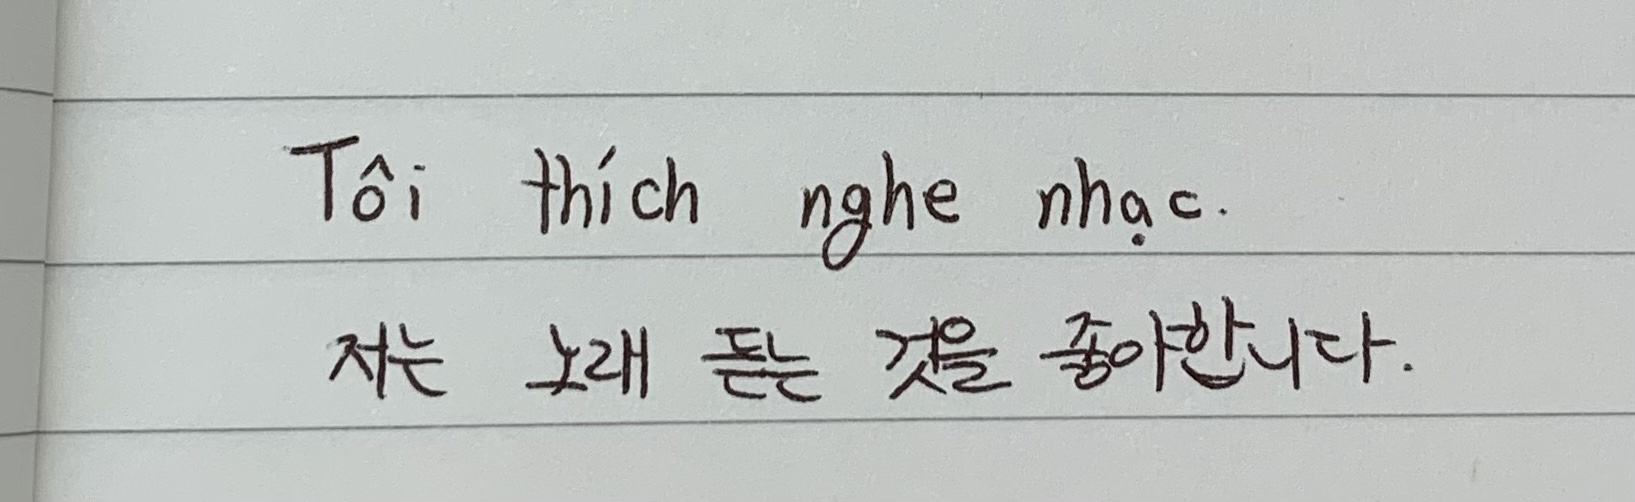 Tôi thích nghe nhạc.
저는 노래 듣는 것을 좋아합니다.